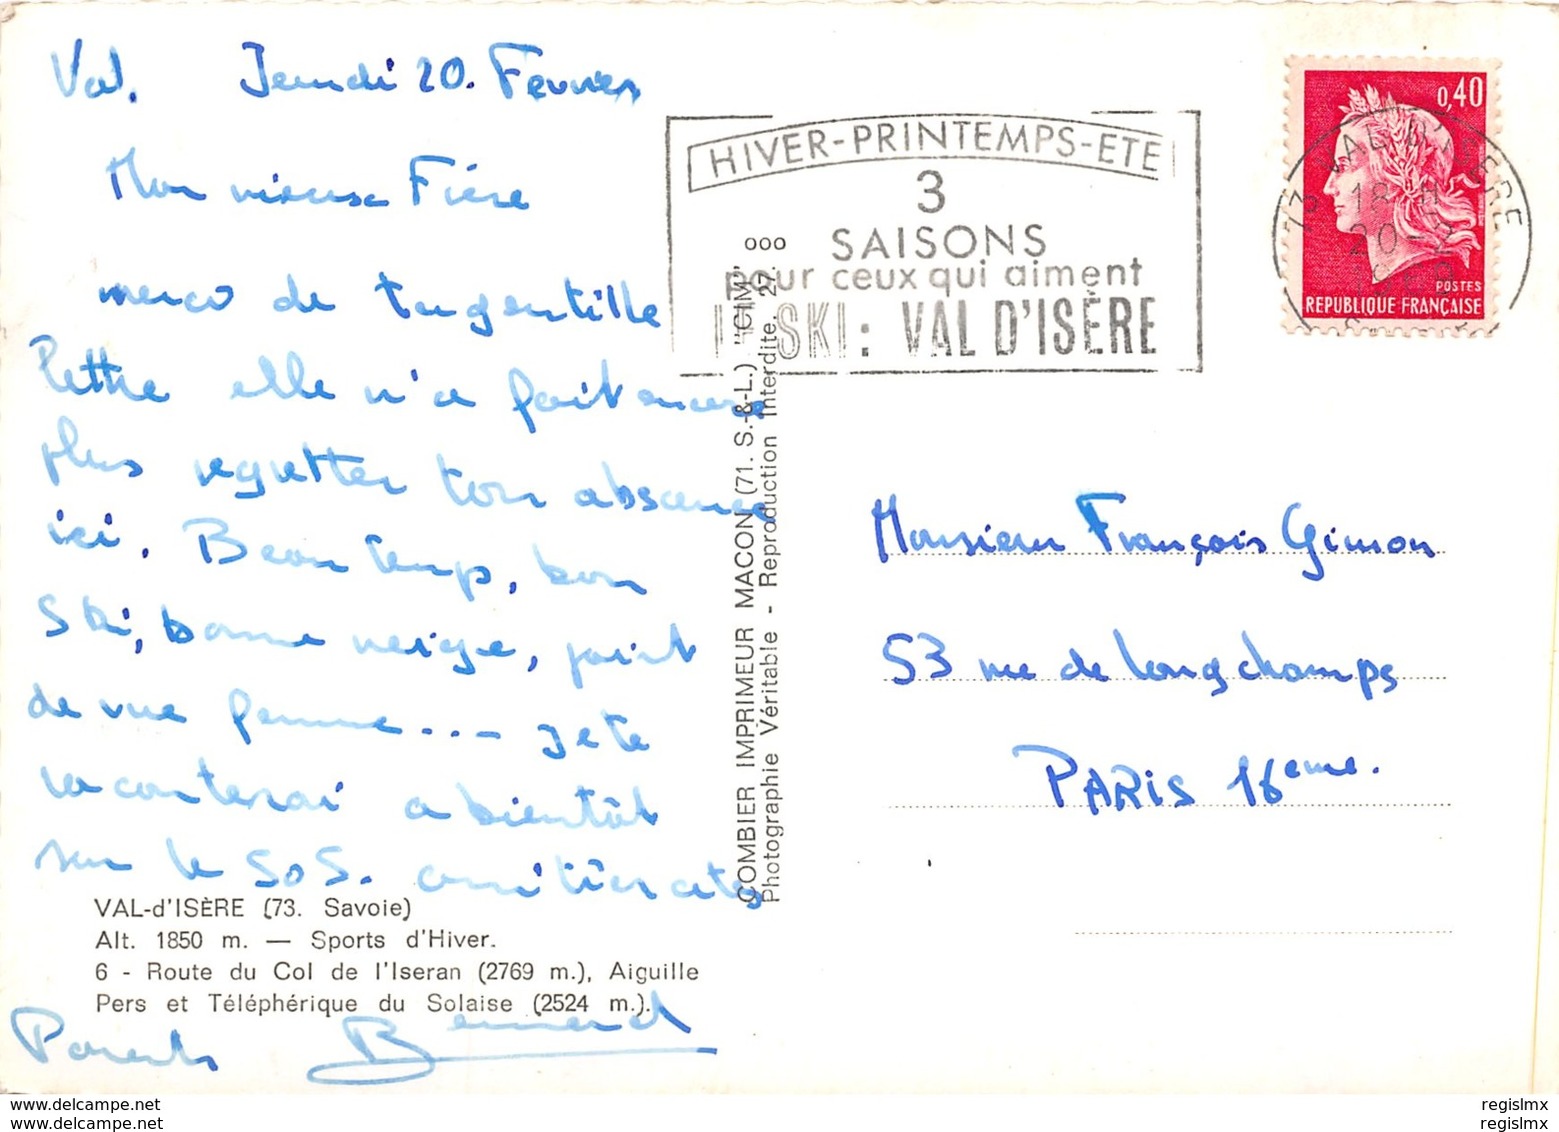 Val. Jeudi 20. Fevrier
Mon vieux Frère
merci de ta gentille
lettre elle n'a fait encore
plus regretter ton absence
ici. Beau temps, bon
Ski, bonne neige, point
de vue femme...- je te
raconterai a bientôt
sur le SOS. amitiés a tes
Parents Bernard
VAL-d'ISÈRE (73. Savoie)
Alt. 1850 m. — Sports d'Hiver.
6 - Route du Col de l'Iseran (2769 m.), Aiguille
Pers et Téléphérique du Solaise (2524 m.).
COMBIER IMPRIMEUR MACON (71. S.-&-L.) "CIM"
Photographie Véritable - Reproduction Interdite. 27. ooo
HIVER-PRINTEMPS-ETE
3
SAISONS
pour ceux qui aiment
LE SKI : VAL D'ISÈRE
0,40
POSTES
REPUBLIQUE FRANÇAISE
73 VAL D'ISERE
18 H
20-
Monsieur François Gimon
53 rue de Longchamps
PARIS 16eme.
https://www.delcampe.net
regislmx
regislmx